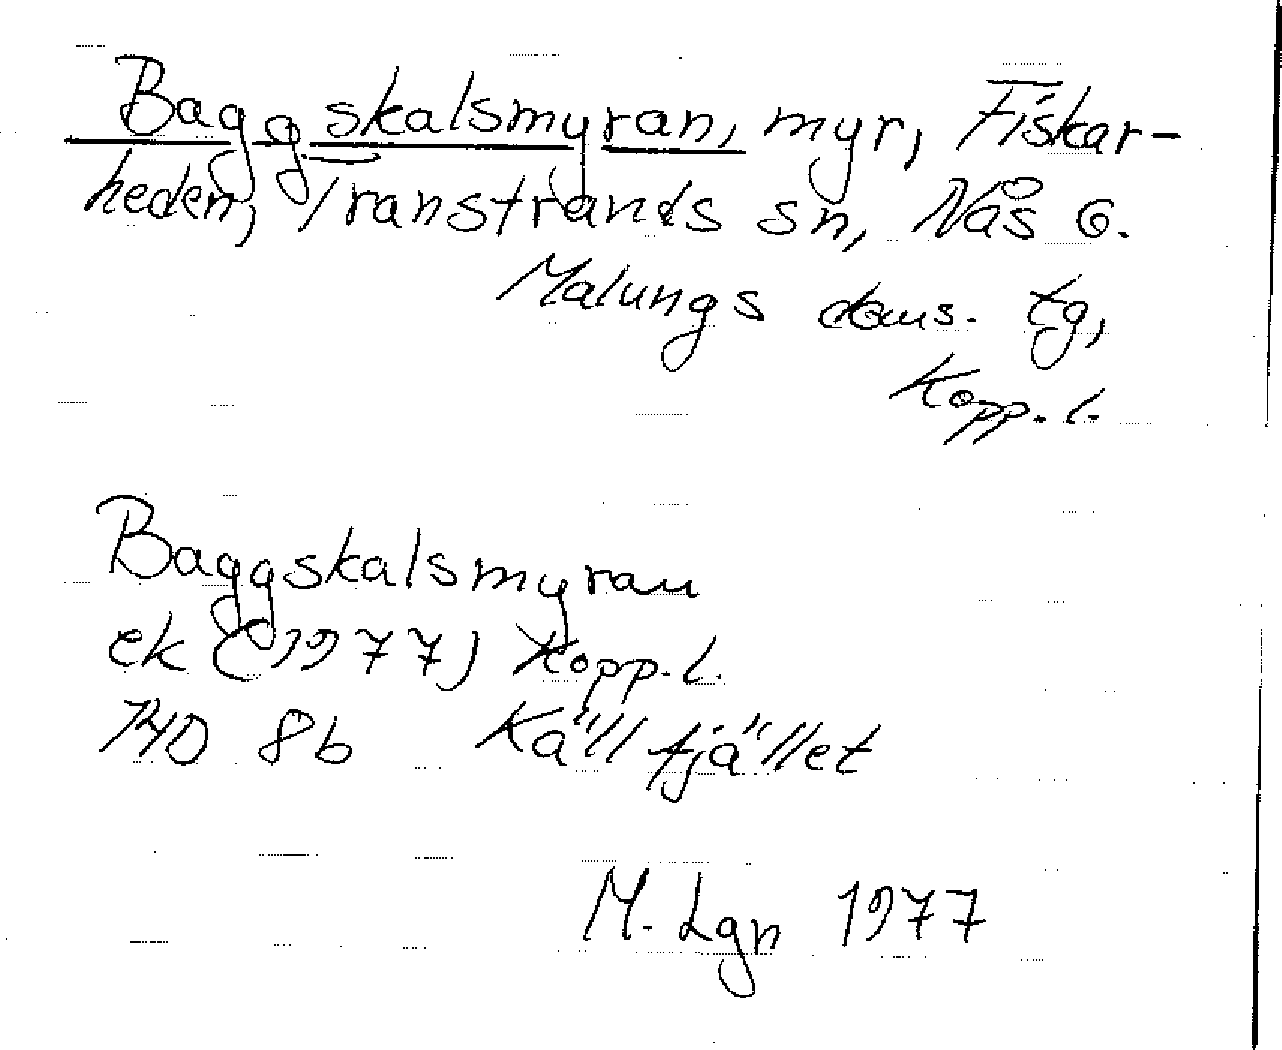 Baggskalsmyran, myr, Fiskar-
heden, Transtrands sn, Nås o.
Malungs doms. tg,
Kopp. l.
Baggskalsmyran
ek (1977) Kopp. l.
14D 8b Källfjället
M. Lgn 1977